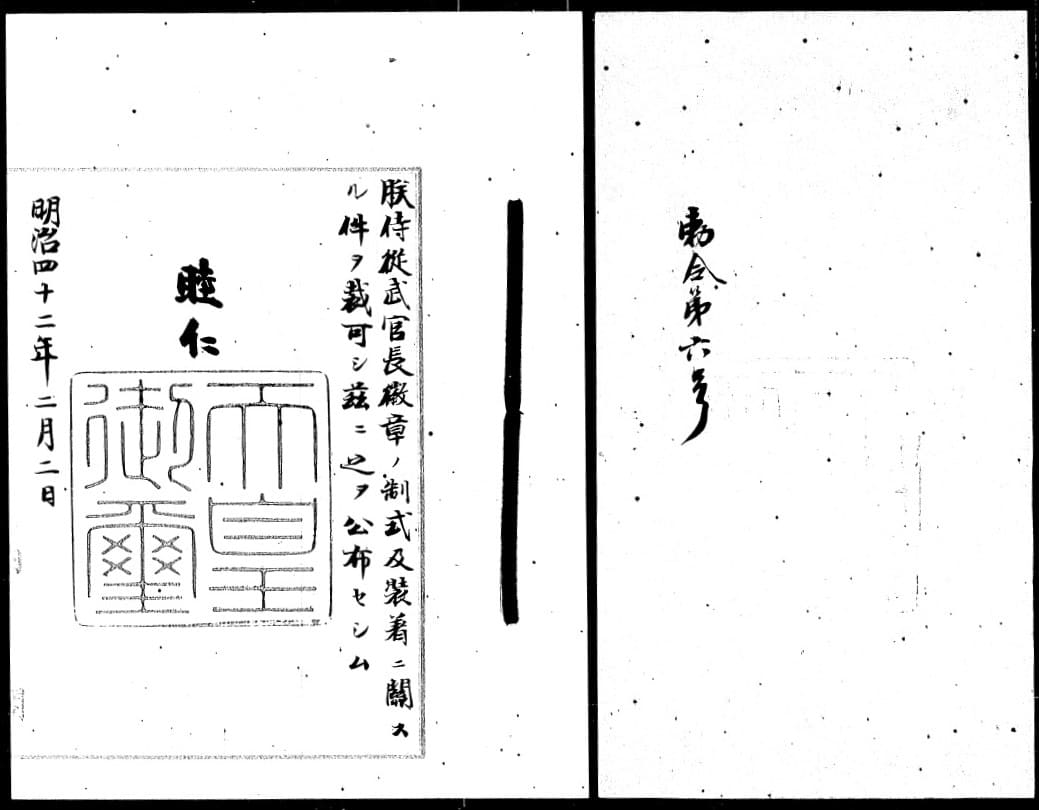 勅令第六号
朕侍從武官長徽章ノ制式及裝着ニ關ス
ル件ヲ裁可シ茲ニ之ヲ公布セシム
睦仁
天皇
御璽
明治四十二年二月二日